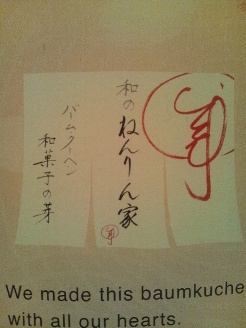 和のねんりん家
バームクーヘン
和菓子の芽
芽
We made this baumkuche
with all our hearts.